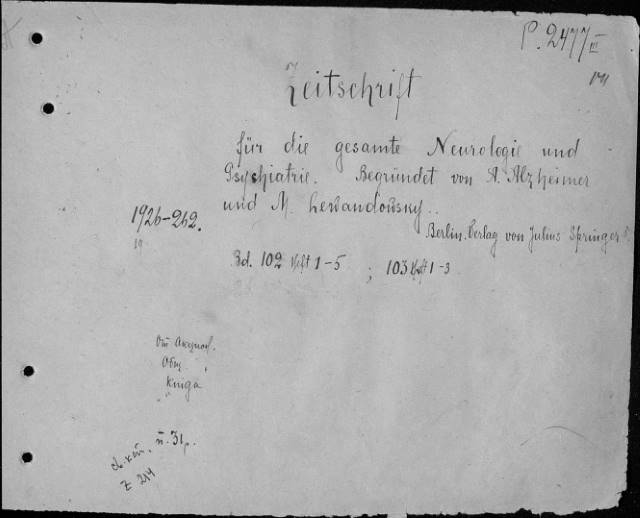 P. 2477 III
Zeitschrift
für die gesamte Neurologie und
Psychiatrie. Begründet von A. Alzheimer
und M. Lewandowsky..
1926-262.
19
Berlin. Verlag von Julius Springer
Bd. 102 Heft 1-5 ; 103 Heft 1-3
Общ
Kniga
п. 31
Z 214